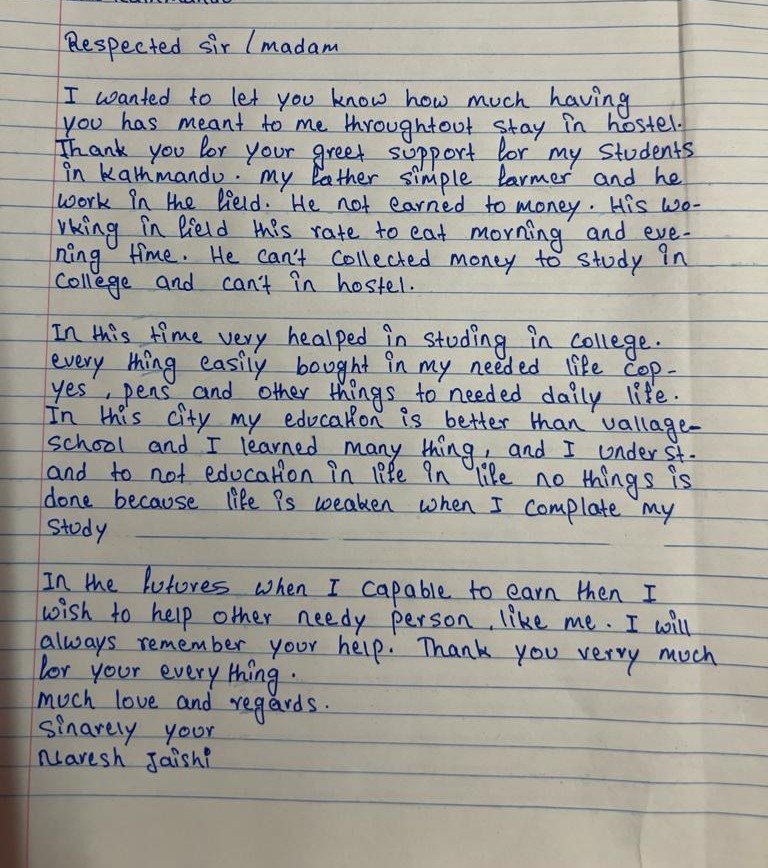 Respected sir / madam
I wanted to let you know how much having
you has meant to me throughtout stay in hostel.
Thank you for your greet support for my students
in Kathmandu. my father simple farmer and he
work in the field. He not earned to money. His wo-
rking in field this rate to eat morning and eve-
ning time. He can't collected money to study in
college and can't in hostel.
In this time very healped in studing in college.
every thing easily bought in my needed life cop-
yes, pens and other things to needed daily life.
In this city my education is better than vallage-
school and I learned many thing, and I underst-
and to not education in life in life no things is
done because life is weaken when I complate my
study
In the futures when I capable to earn then I
wish to help other needy person, like me. I will
always remember your help. Thank you verry much
for your every thing.
much love and regards.
Sinarely your
Naresh Jaishi